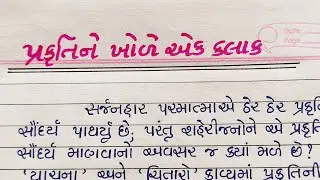 Date
Page
પ્રકૃતિને ખોળે એક કલાક
સર્જનહાર પરમાત્માએ ઠેર ઠેર પ્રકૃ
સૌંદર્ય પાથર્યું છે; પરંતુ શહેરીજનોને એ પ્રકૃ
સૌંદર્ય માણવાનો અવસર જ ક્યાં મળે છે?
'યાચના' અને 'ચિતારો' કાવ્યમાં પ્રકૃતિની